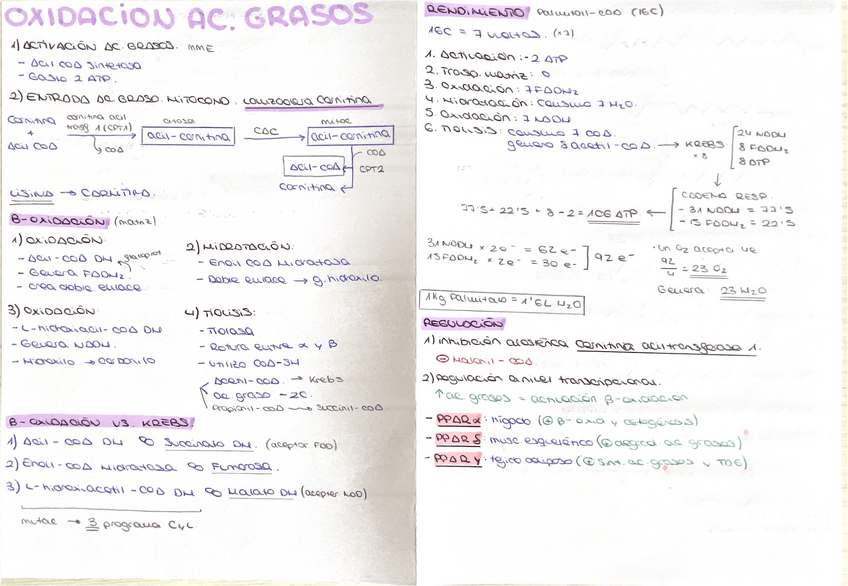 OXIDACION AC. GRASOS
1) ACTIVACIÓN AC. GRASOS. MME
- Acil CoA sintetasa
- Gasto 2 ATP.
2) ENTRADA AC GRASO MITOCOND: Lanzadera Carnitina
Carnitina + Acil CoA
carnitina acil transf 1 (CPT1)
CoA
citosol
acil-carnitina
CAC
mitoc
acil-carnitina
CoA
CPT2
acil-CoA
Carnitina
LISINA → CARNITINA.
B-OXIDACIÓN (matriz)
1) OXIDACIÓN:
- Acil-CoA DH
- Genera FADH2.
- Crea doble enlace.
2) HIDRATACIÓN:
- Enoil CoA Hidratasa
- Doble enlace → g. hidroxilo.
3) OXIDACIÓN:
- L-hidroxiacil-CoA DH
- Genera NADH.
- Hidroxilo → Carbonilo
4) TIOLISIS:
- Tiolasa
- Rotura entre α y β
- Utiliza CoA-SH
Acetil-CoA. → Krebs
Ac. graso -2C.
Propionil-CoA → Succinil-CoA
B-OXIDACIÓN VS. KREBS
1) Acil-CoA DH ∞ Succinato DH. (aceptor FAD)
2) Enoil-CoA Hidratasa ∞ Fumarasa.
3) L-hidroxiacetil-CoA DH ∞ Malato DH (aceptor NAD)
mitoc → 3 programa
RENDIMIENTO Palmitoil-CoA (16C)
16C = 7 vueltas. (x7)
1. Activación: -2 ATP
2. Transp. matriz: 0
3. Oxidación: 7 FADH2
4. Hidratación: Consumo 7 H2O.
5. Oxidación: 7 NADH
6. TIOLISIS: consumo 7 CoA.
genera 8 acetil-CoA. → KREBS x 8
24 NADH
8 FADH2
8 ATP
CADENA RESP.
- 31 NADH = 77'5
- 15 FADH2 = 22'5
77'5 + 22'5 + 8 - 2 = 106 ATP
31 NADH x 2e- = 62 e-
15 FADH2 x 2e- = 30 e-
92 e-
· Un O2 acepta 4e
92/4 = 23 O2
Genera: 23 H2O
1 Kg Palmitato = 1'6L H2O
REGULACIÓN
1) Inhibición alostérica Carnitina aciltransferasa 1.
⊖ Malonil-CoA
2) Regulación a nivel transcripcional.
↑ ac grasos = activación β-oxidación
- PPAR α: hígado (⊕ B-oxid y cetogénesis)
- PPAR δ: musc esquelético (⊕ ac grasos)
- PPAR γ: tejido adiposo (⊕ Sint. ac. grasos y TAG)